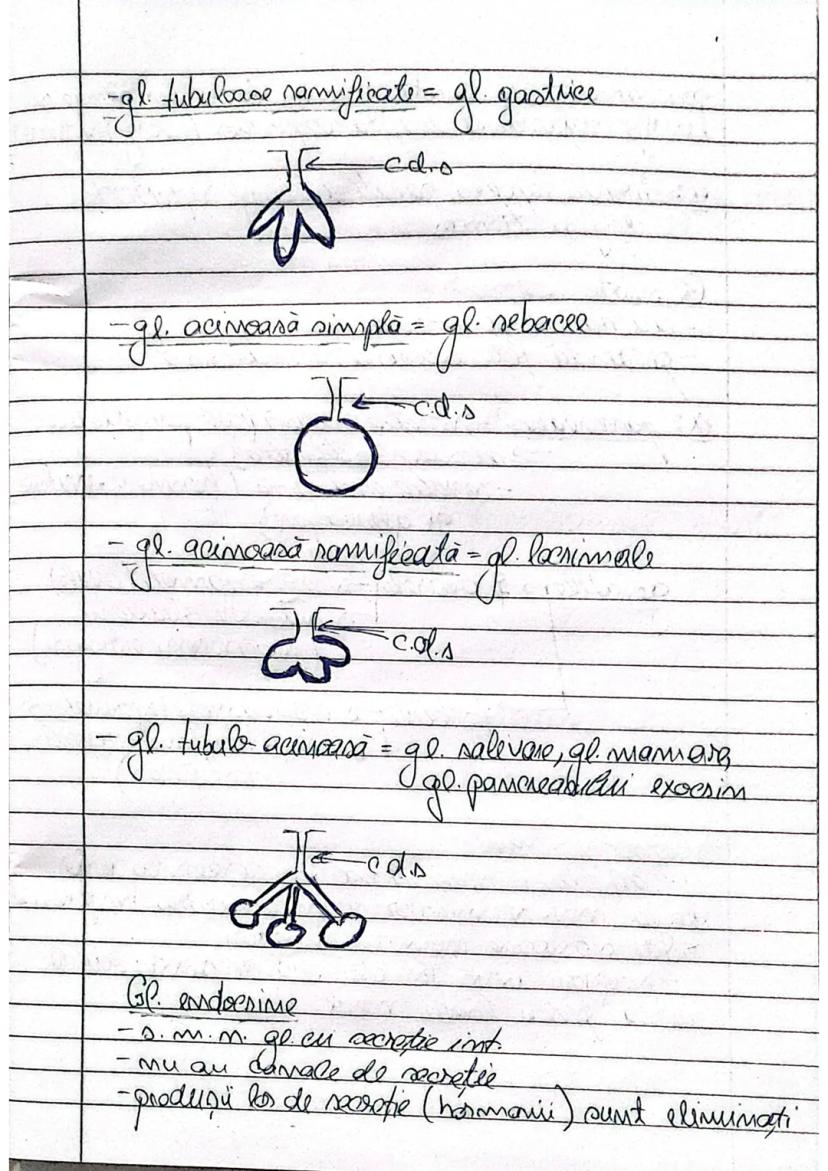 -gl. tubuloase ramificate = gl. gastrice
c.d.s
-gl. acinoasă simplă = gl. sebacee
c.d.s
- gl. acinoasă ramificată = gl. lacrimale
c.d.s
- gl. tubulo-acinoasă = gl. salivare, gl. mamară,
gl. pancreasului exocrin
c.d.s
Gl. endocrine
- s.m.n. gl. cu secreție int.
- nu au canale de secreție
- produșii lor de secreție (hormonii) sunt eliminați